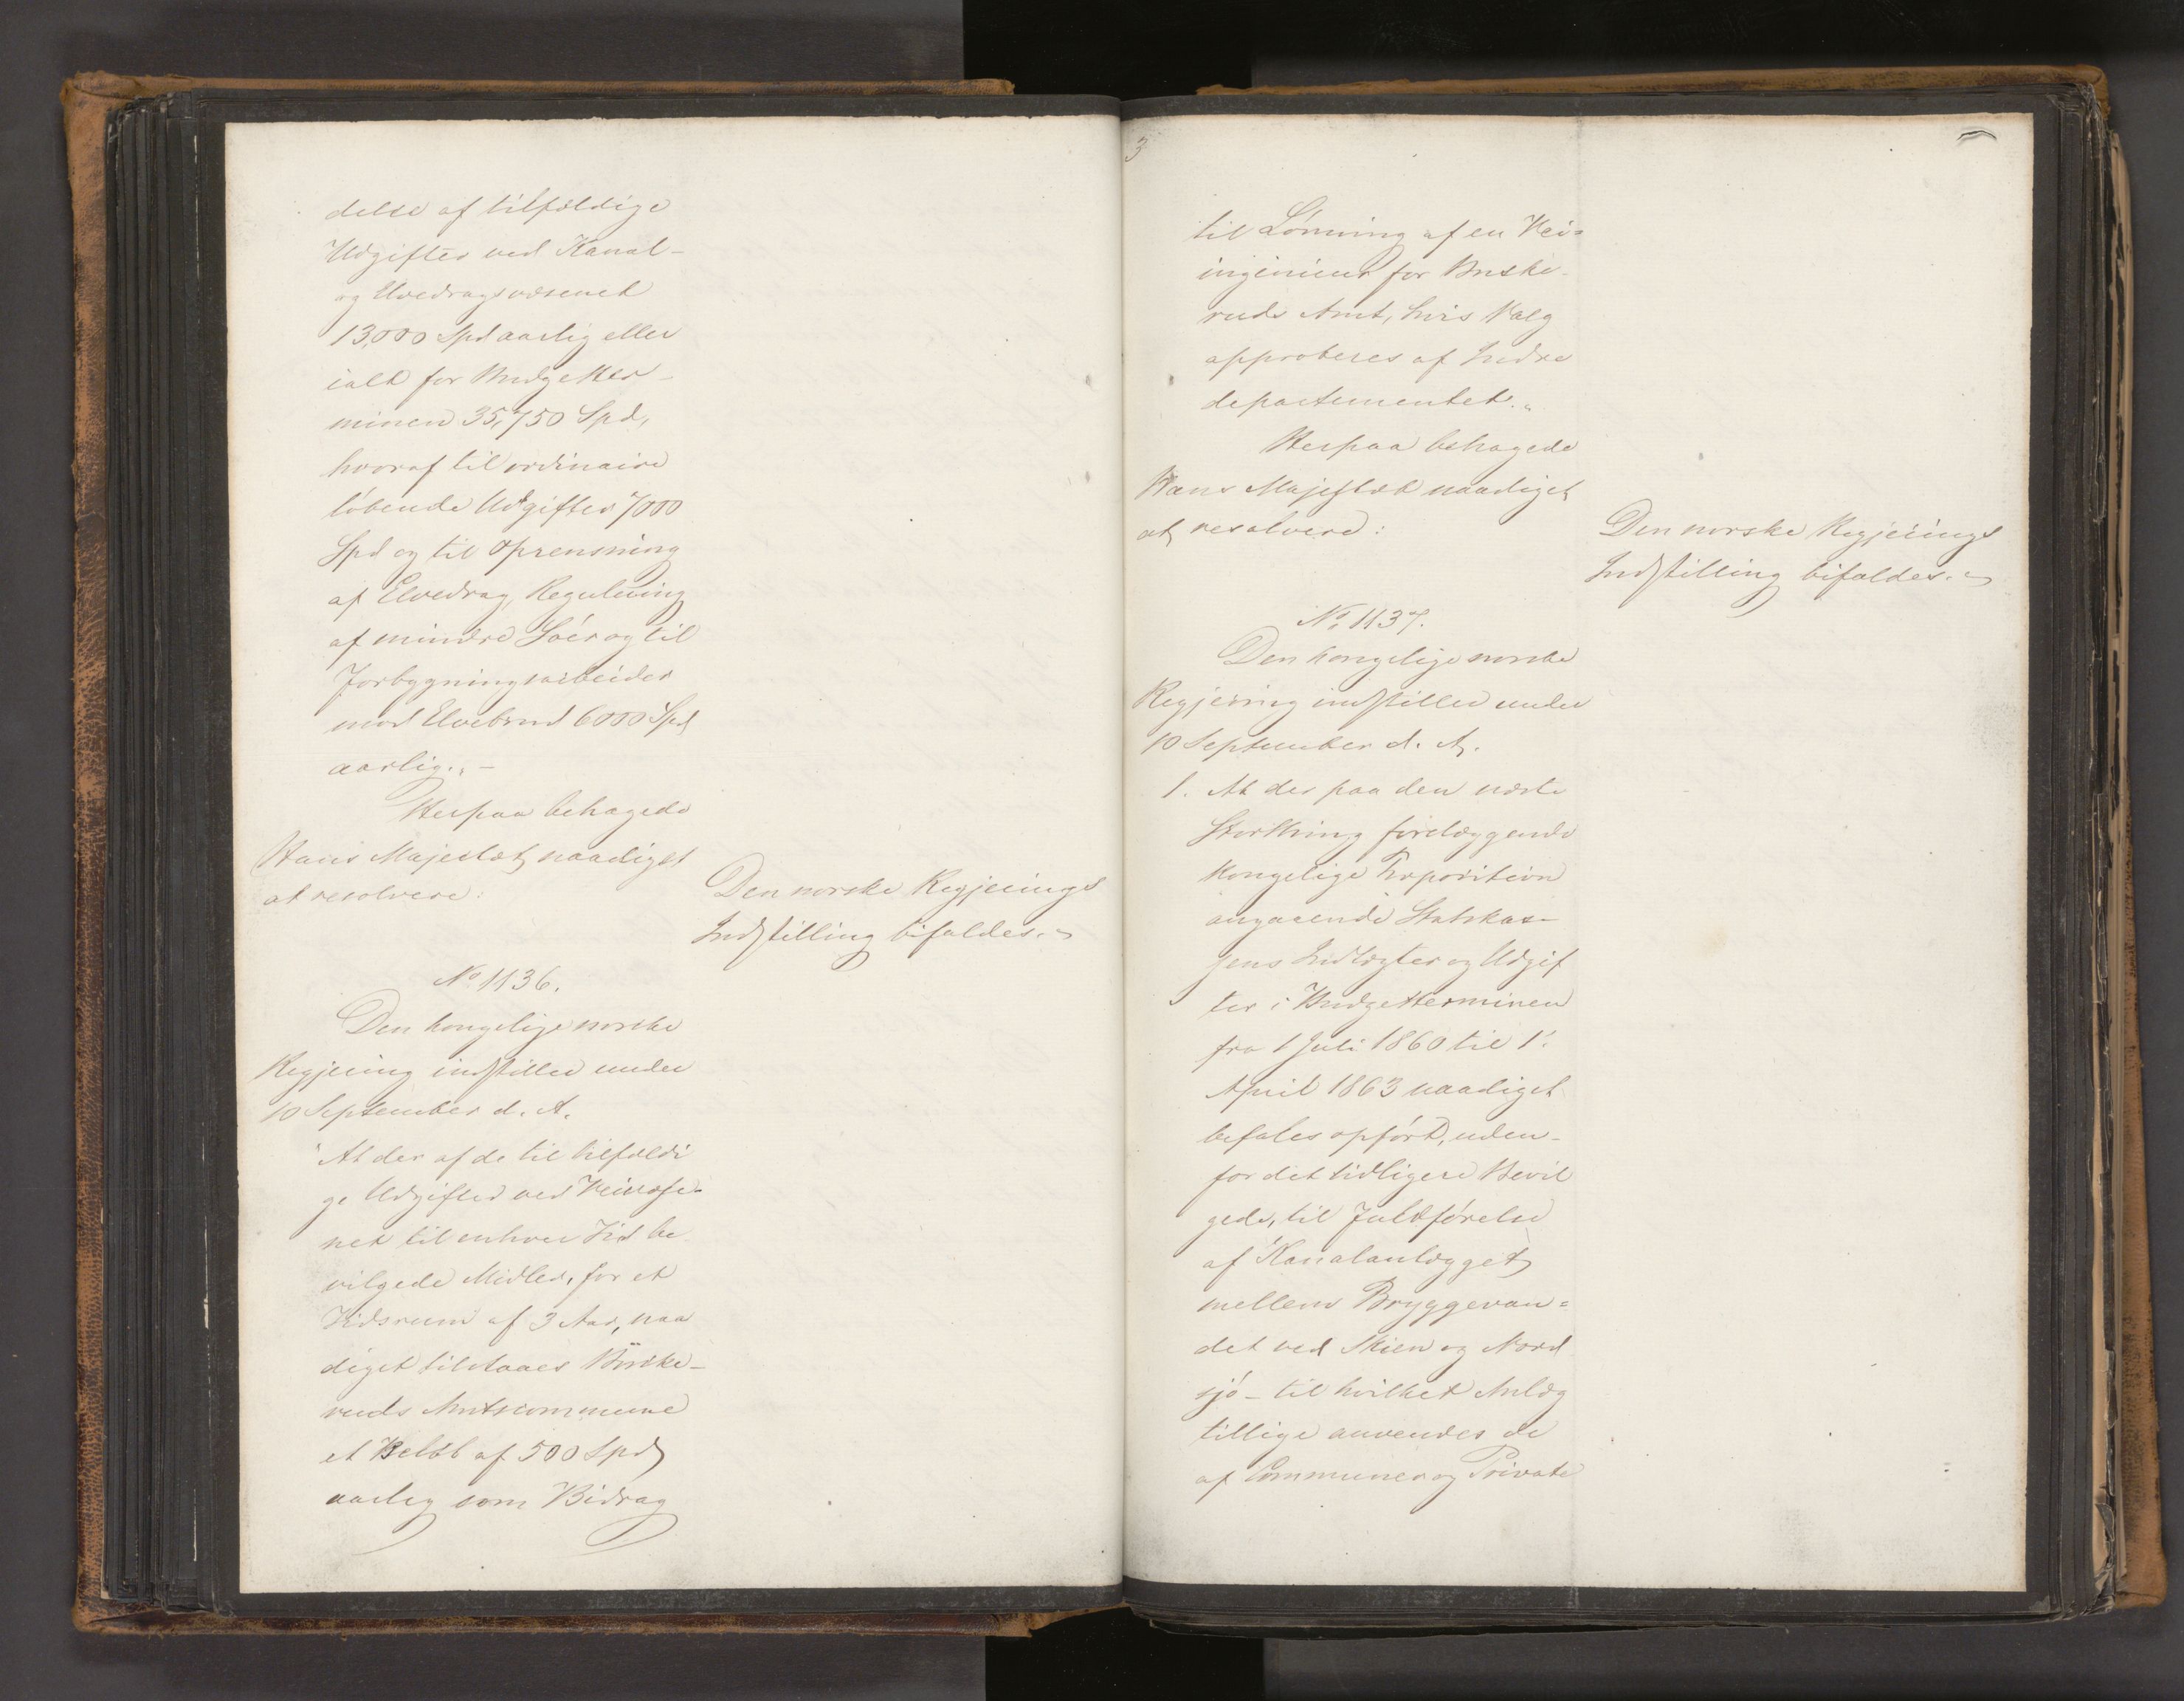 delse af tilfældige
Udgifter ved Kanal-
og Elvedragsvæsenet
13,000 Spd aarlig eller
ialt for Budgetter-
minen 35,750 Spd,
hvoraf til ordinaire
löbende Udgifter 7000
Spd og til Oprensning
af Elvedrag, Regulering
af mindre Söer og til
Forbygningsarbeider
mod Elvebrud 6000 Spd
aarlig." -
Herpaa behagede
Hans Majestæt naadigst
at resolvere:
Den norske Regjerings
Indstilling bifaldes.
No 1136.
Den kongelige norske
Regjering indstiller under
10 September d. A.
"At der af de til tilfældi
ge Udgifter ved Veivæse-
net til enhver Tid be
vilgede Midler, for et
Tidsrum af 3 Aar, naa
digst tilstaaes Buske-
ruds Amtscommune
et Belöb af 500 Spd
aarlig som Bidrag
3
til Lönning af en Vei=
ingenieur for Buske-
ruds Amt, hvis Valg
approberes af Indre
departementet."
Herpaa behagede
Hans Majestæt naadigst
at resolvere:
Den norske Regjerings
Indstilling bifaldes.
No 1137.
Den kongelige norske
Regjering indstiller under
10 September d. A.
1. At der paa den næste
Storthing forelæggende
kongelige Proposition
angaaende Statskas-
sens Indtægter og Udgif
ter i Budgetterminen
fra 1 Juli 1860 til 1.
April 1863 naadigst
befales opfört, uden-
for det tidligere Bevil
gede, til Fuldförelse
af Kanalanlægget
mellem Bryggevan=
det ved Skien og Nord
sjö - til hvilket Anlæg
tillige anvendes de
af Communer og Private